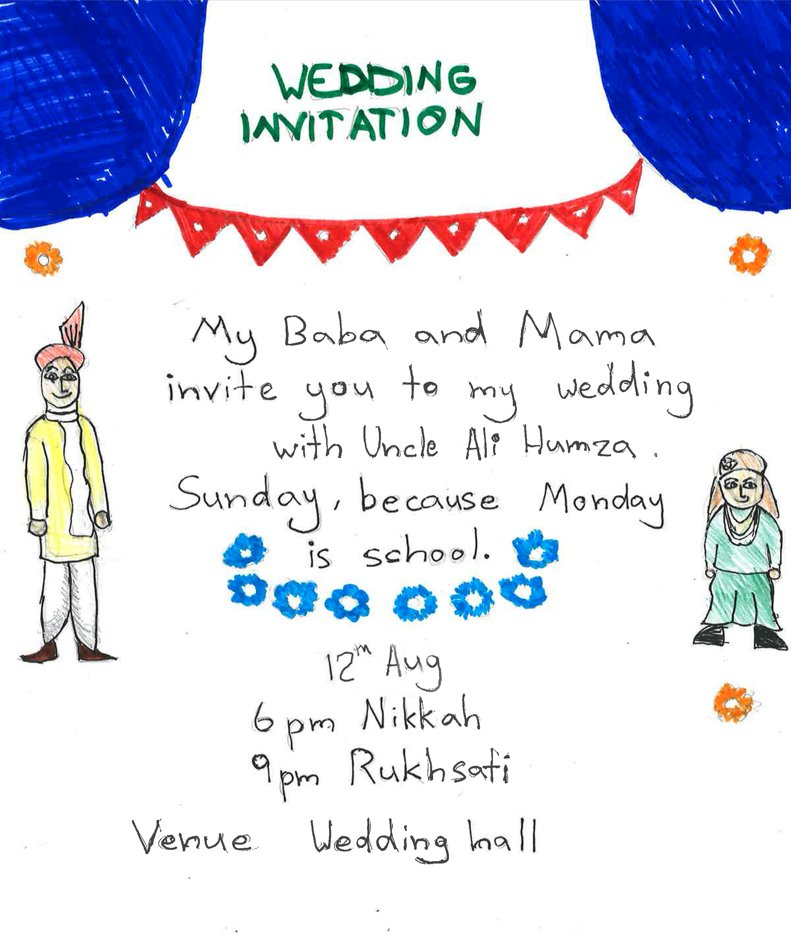 WEDDING
INVITATION
My Baba and Mama
invite you to my wedding
with Uncle Ali Humza.
Sunday, because Monday
is school.
12th Aug
6 pm Nikkah
9 pm Rukhsati
Venue Wedding hall